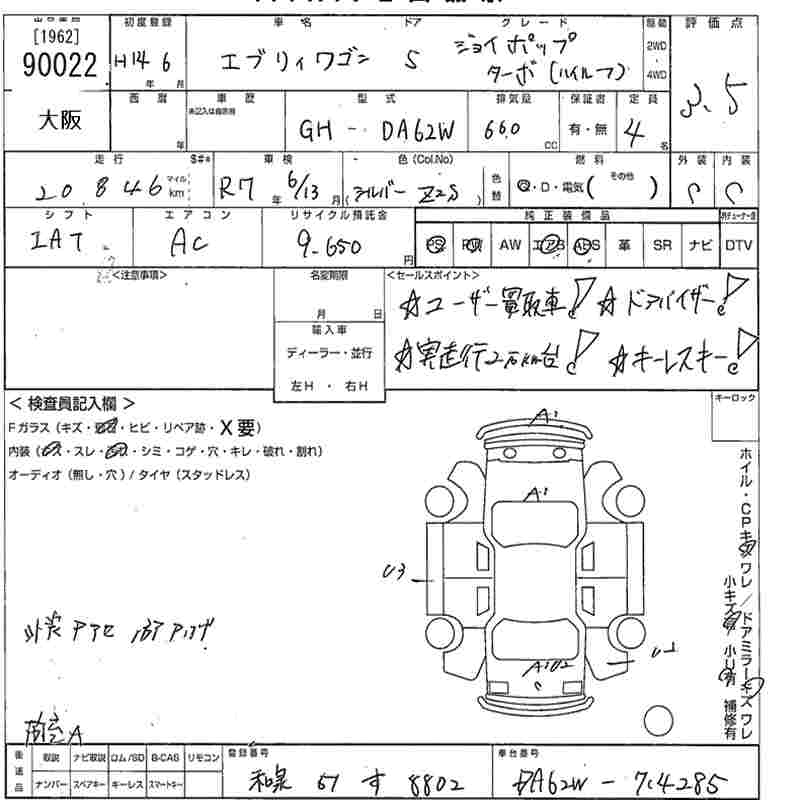 [1962]
90022
大阪
初度登録
H14 年 6 月
車名
エブリィワゴン
ドア
5
グレード
ジョイポップ
ターボ(ハイルーフ)
駆動
2WD
4WD
評価点
3.5
西暦
年
車歴
未記入は自家用
型式
GH - DA62W
排気量
660 cc
保証書
有・無
定員
4 名
走行
20,846 マイル km
S#*
車検
R7 年 6/13 月
色(Col.No)
(シルバー Z2S)
色替
燃料
G・D・電気( その他 )
外装
C
内装
C
シフト
IAT
エアコン
AC
リサイクル預託金
9,650 円
純正装備品
PS PW AW エアB ABS 革 SR ナビ
DTV
<注意事項>
名変期限
月 日
輸入車
ディーラー・並行
左H・右H
<セールスポイント>
☆ユーザー買取車! ☆ドアバイザー!
☆実走行2万km台! ☆キーレスキー!
キーロック
< 検査員記入欄 >
Fガラス(キズ・・ヒビ・リペア跡・X要)
内装(・スレ・・シミ・コゲ・穴・キレ・破れ・割れ)
オーディオ(無し・穴)/タイヤ(スタッドレス)
A1
A1
U3
外装
ホイル・CPキズワレ/ドアミラーキズワレ
小キズ有 小U有 補修有
後送品
取説 ナビ取説 ロム/SD B-CAS リモコン
ナンバー スペアキー キーレス スマートキー
登録番号
和泉 す 8802
車台番号
DA62W - 74285